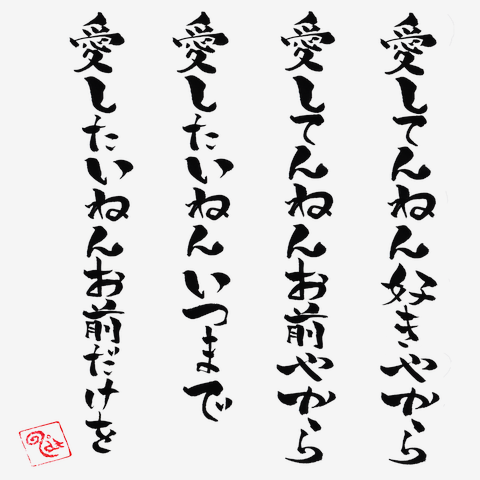 愛してんねん好きやから
愛してんねんお前やから
愛したいねんいつまで
愛したいねんお前だけを